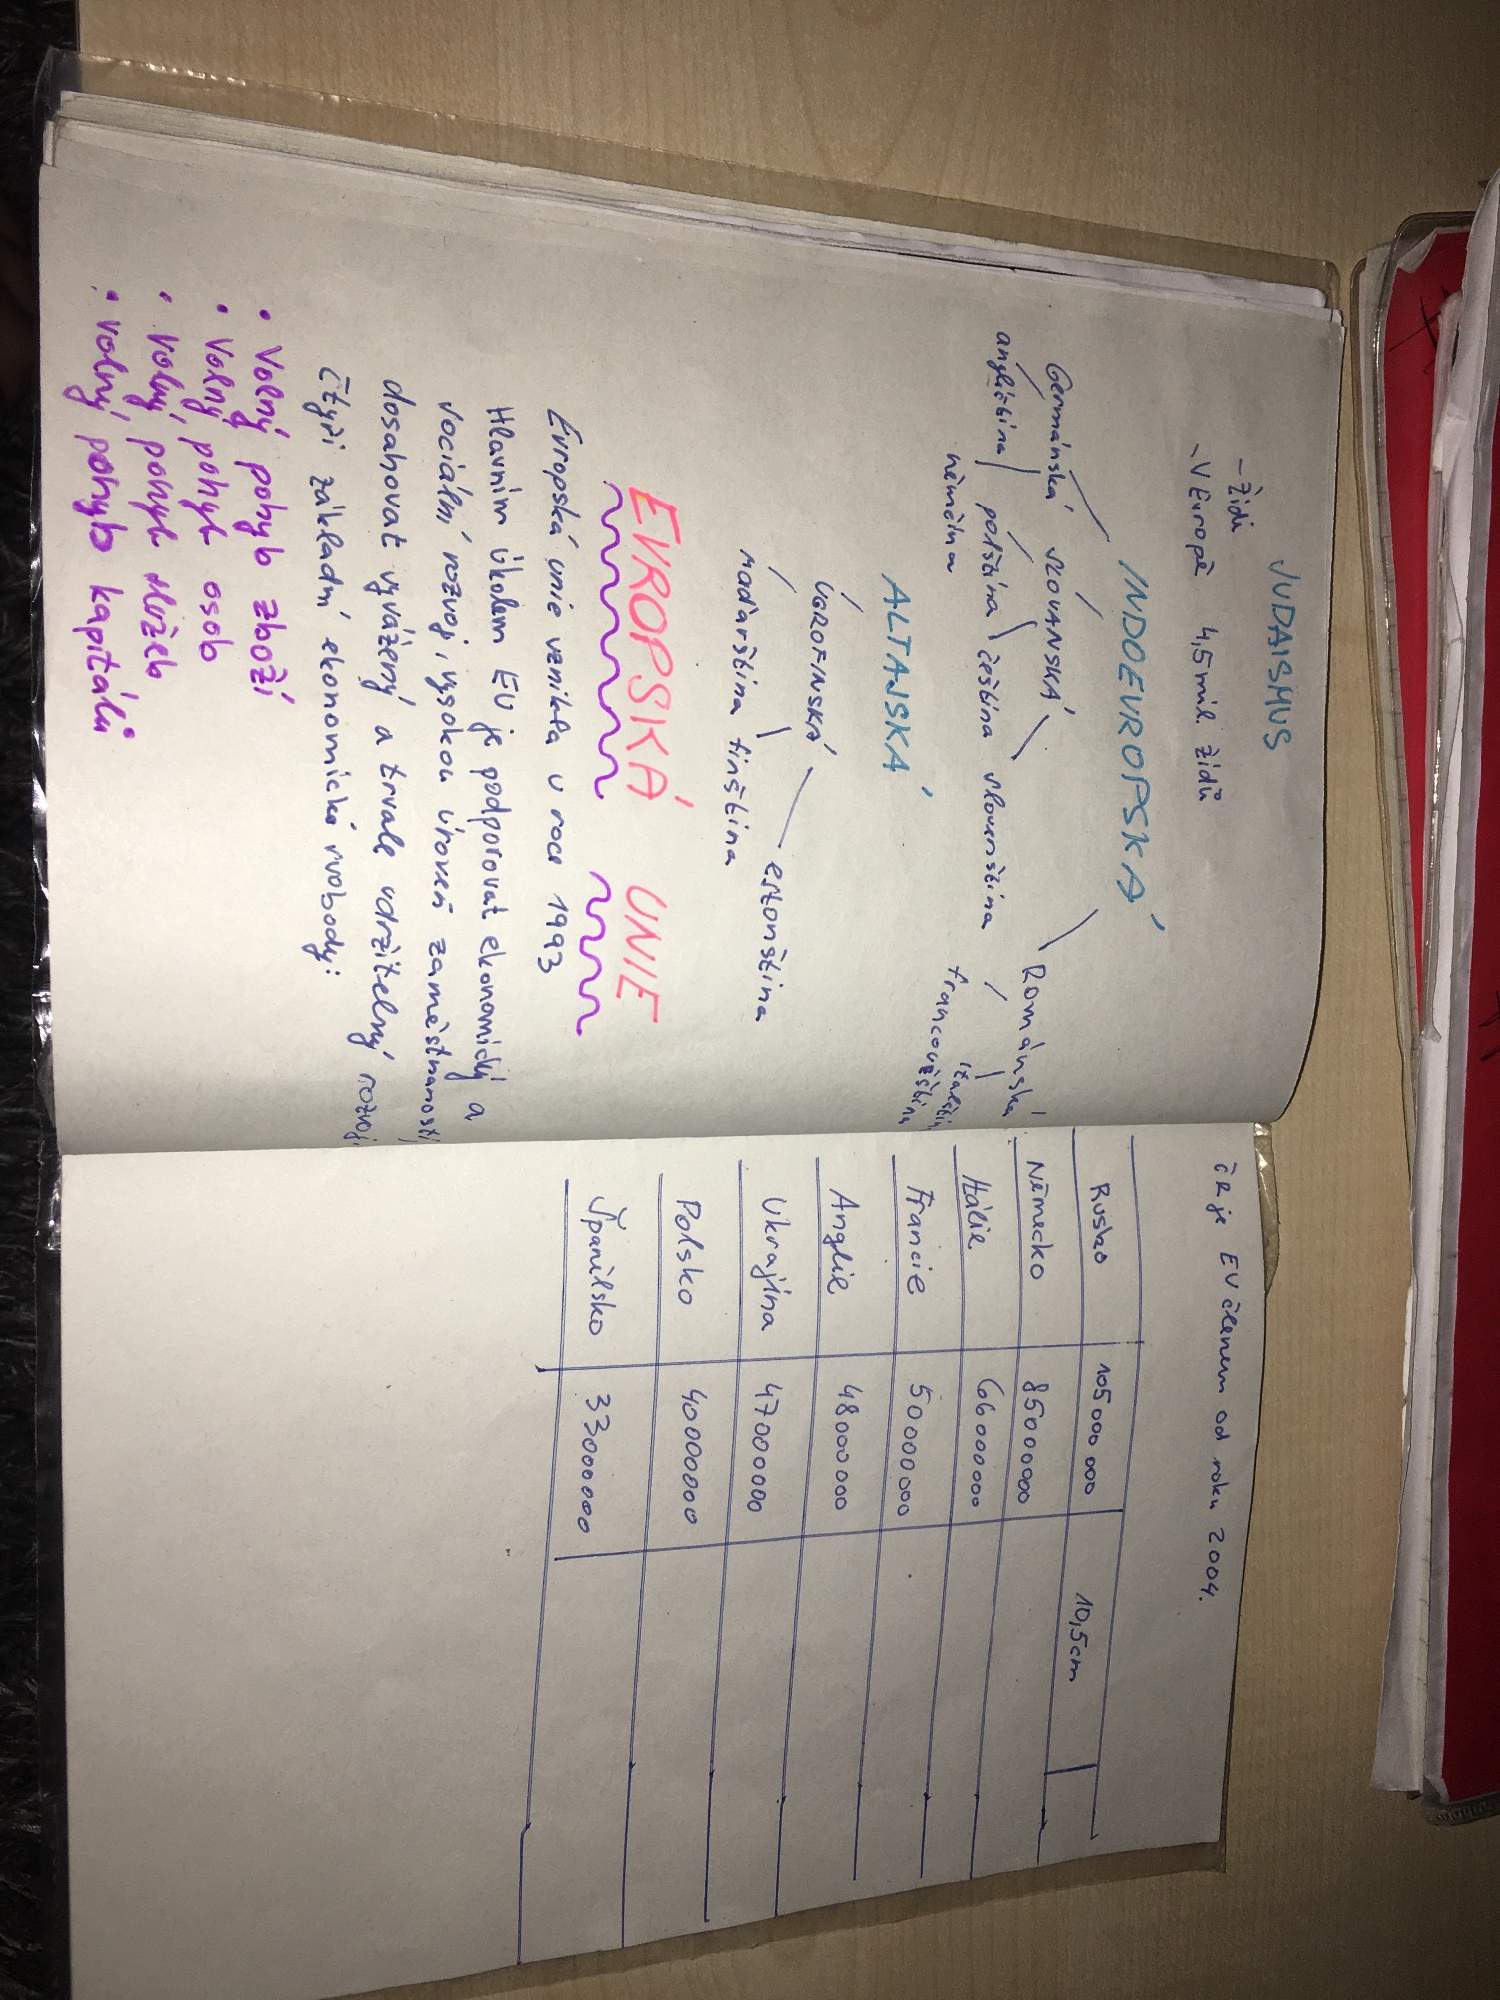 JUDAISMUS
- Židů
- V Evropě 4,5 mil. židů
INDOEVROPSKÁ
Germánská SLOVANSKÁ Románská
angličtina polština čeština slovenština italština
němčina francouzština
ALTAJSKÁ
UGROFINSKÁ estonština
maďarština finština
EVROPSKÁ UNIE
Evropská unie vznikla v roce 1993
Hlavním úkolem EU je podporovat ekonomický a
sociální rozvoj, vysokou úroveň zaměstnanosti,
dosahovat vyvážený a trvale udržitelný rozvoj.
Čtyři základní ekonomické svobody:
• Volný pohyb zboží
• Volný pohyb osob
• Volný pohyb služeb
• Volný pohyb kapitálu
ČR je EU členem od roku 2004.
Rusko 105000 000 10,5cm
Německo 85000000
Itálie 66000000
Francie 50000000
Anglie 48000000
Ukrajina 47000000
Polsko 40000000
Španělsko 33000000